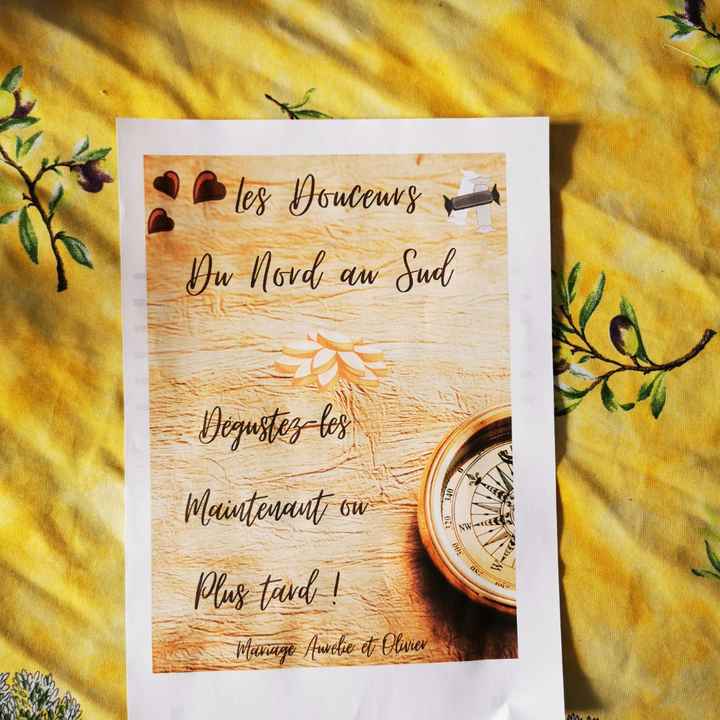 les Douceurs
Du Nord au Sud
Dégustez-les
Maintenant ou
Plus tard !
Mariage Aurélie et Olivier
140
120
NW
W